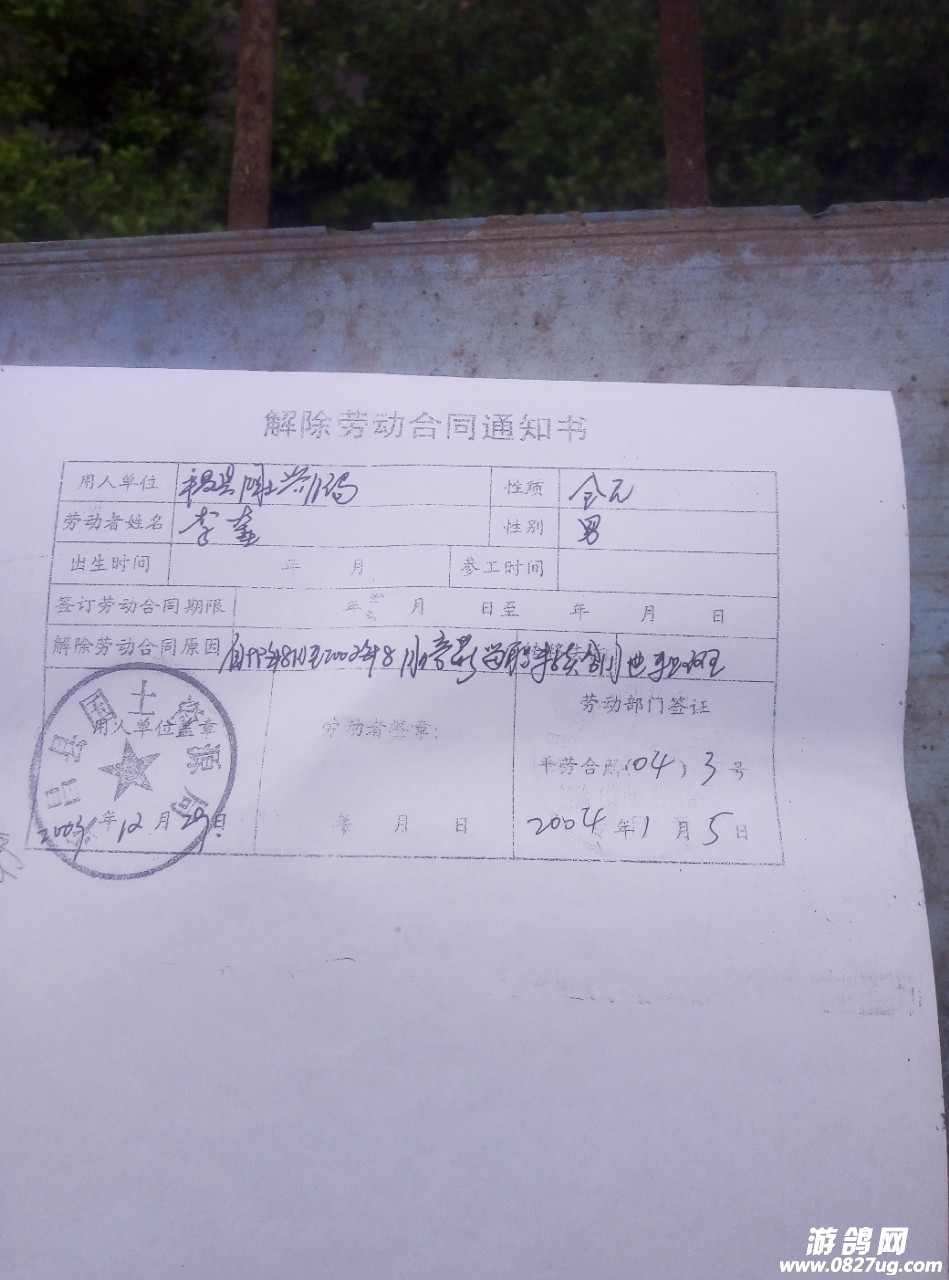 解除劳动合同通知书
用人单位 性质 全元
劳动者姓名 李 性别 男
出生时间 年 月 参工时间
签订劳动合同期限 年 月 日至 年 月 日
解除劳动合同原因 年8月至2002年8月
国土资源局
用人单位盖章 劳动者签章: 劳动部门签证
平劳合 (04) 3 号
2003年12月29日 年 月 日 2004年1月5日
游鸽网
www.0827ug.com